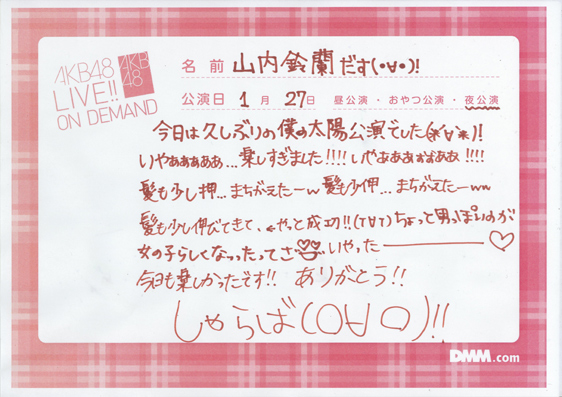 AKB48
LIVE!!
ON DEMAND
AKB
48
名前 山内鈴蘭だす(・∀・)!
公演日 1月 27日 昼公演・おやつ公演・夜公演
今日は久しぶりの僕の太陽公演でした(*´∀`*)!
いやぁぁぁぁぁ...楽しすぎました!!!! いやぁぁぁぉぉぁぁ!!!!
髪も少し押...まちがえたーw 髪も少し押...まちがえたーww
髪も少し伸びてきて、←やっと成功!!(T∀T)ちょっと男っぽいのが
女の子らしくなったってさ いやったー――♡
今日も楽しかったです!! ありがとう!!
しゃらば(○∀○)!!
DMM.com